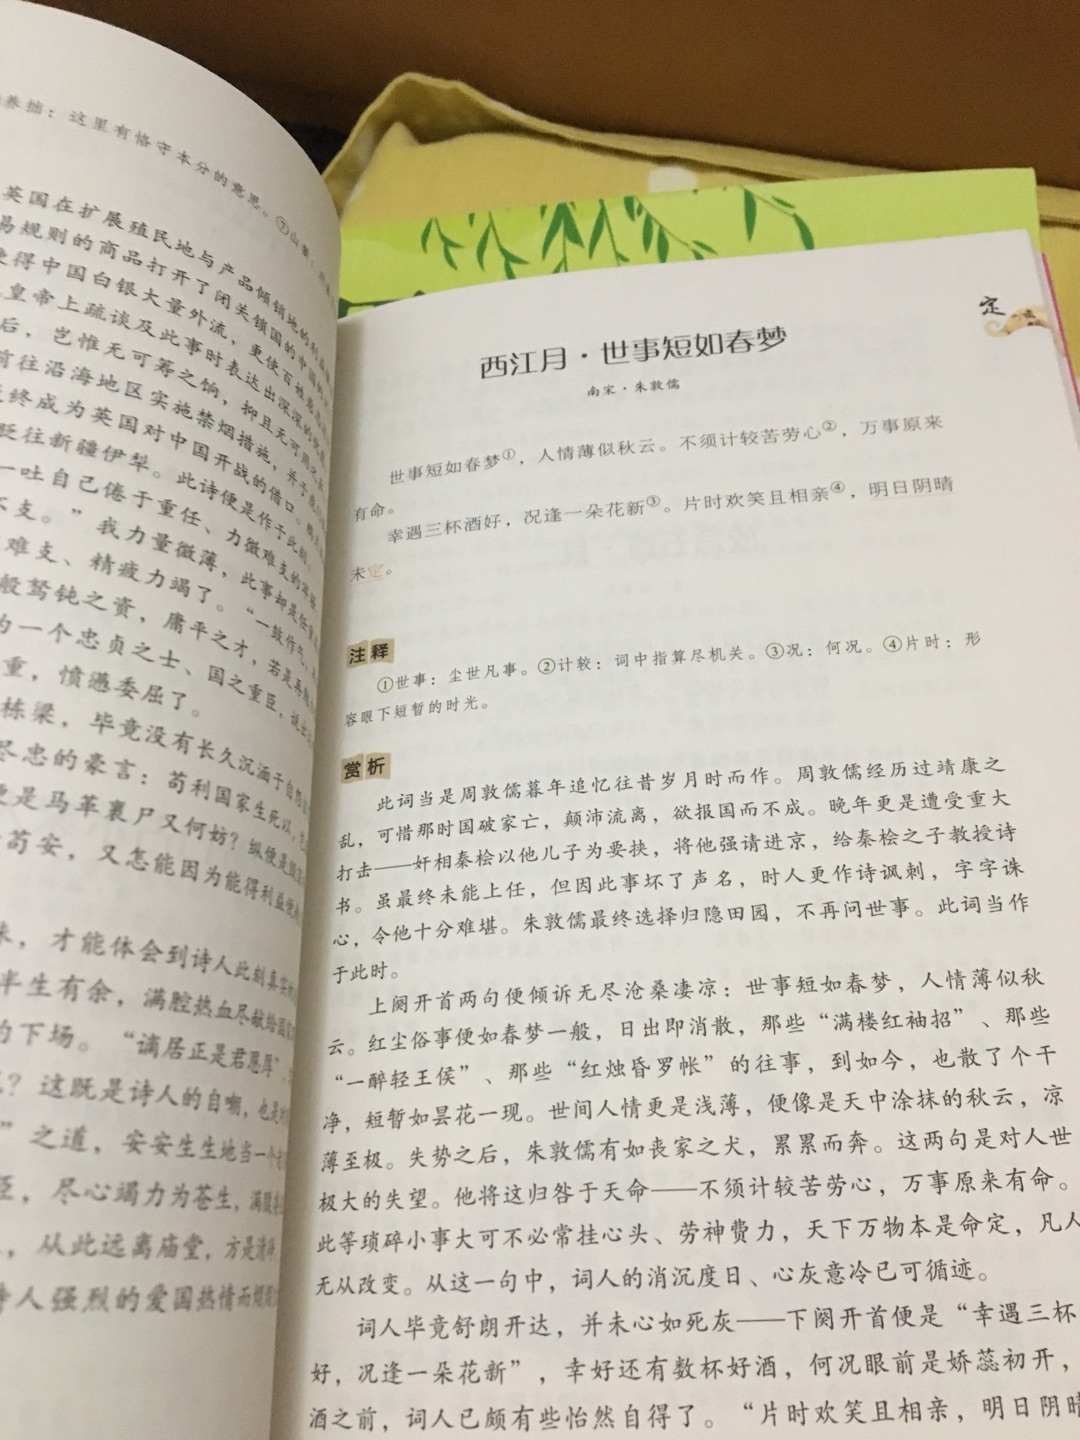 养拙：这里有恪守本分的意思。⑦山
英国在扩展殖民地与产品倾销地的
易规则的商品打开了闭关锁国的中国的
使得中国白银大量外流，更使百姓
皇帝上疏谈及此事时表达出深深的
后，岂惟无可筹之饷，抑且无可用之
前往沿海地区实施禁烟措施，并于
终成为英国对中国开战的借口。
贬往新疆伊犁。此诗便是作于此刻。
一吐自己倦于重任、力微难支的
不支。”我力量微薄，此事却是任
难支、精疲力竭了。“一鼓作气，
般驽钝之资，庸平之才，若是再
为一个忠贞之士、国之重臣，说出
重，愤懑委屈了。
栋梁，毕竟没有长久沉湎于自怨
尽忠的豪言：苟利国家生死以，
便是马革裹尸又何妨？纵使是
苟安，又怎能因为能得利益便
味，才能体会到诗人此刻真实的
半生有余，满腔热血尽献给国
的下场。“谪居正是君恩厚”，
？这既是诗人的自嘲，也是
”之道，安安生生地当一个
臣，尽心竭力为苍生，满腹
，从此远离庙堂，方是清
诗人强烈的爱国热情而
定
西江月·世事短如春梦
南宋·朱敦儒
世事短如春梦①，人情薄似秋云。不须计较苦劳心②，万事原来
有命。
幸遇三杯酒好，况逢一朵花新③。片时欢笑且相亲④，明日阴晴
未定。
注释
①世事：尘世凡事。②计较：词中指算尽机关。③况：何况。④片时：形
容眼下短暂的时光。
赏析
此词当是周敦儒暮年追忆往昔岁月时而作。周敦儒经历过靖康之
乱，可惜那时国破家亡，颠沛流离，欲报国而不成。晚年更是遭受重大
打击——奸相秦桧以他儿子为要挟，将他强请进京，给秦桧之子教授诗
书。虽最终未能上任，但因此事坏了声名，时人更作诗讽刺，字字诛
心，令他十分难堪。朱敦儒最终选择归隐田园，不再问世事。此词当作
于此时。
上阕开首两句便倾诉无尽沧桑凄凉：世事短如春梦，人情薄似秋
云。红尘俗事便如春梦一般，日出即消散，那些“满楼红袖招”、那些
“一醉轻王侯”、那些“红烛昏罗帐”的往事，到如今，也散了个干
净，短暂如昙花一现。世间人情更是浅薄，便像是天中涂抹的秋云，凉
薄至极。失势之后，朱敦儒有如丧家之犬，累累而奔。这两句是对人世
极大的失望。他将这归咎于天命——不须计较苦劳心，万事原来有命。
此等琐碎小事大可不必常挂心头、劳神费力，天下万物本是命定，凡人
无从改变。从这一句中，词人的消沉度日、心灰意冷已可循迹。
词人毕竟舒朗开达，并未心如死灰——下阕开首便是“幸遇三杯
好，况逢一朵花新”，幸好还有数杯好酒，何况眼前是娇蕊初开，
酒之前，词人已颇有些怡然自得了。“片时欢笑且相亲，明日阴晴